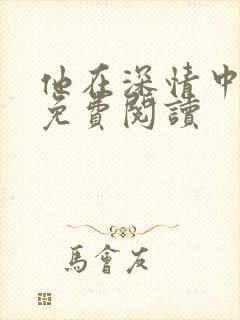 他在深情中
免費閱讀
馬會友